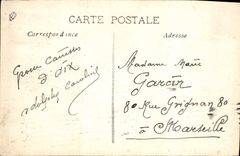 CARTE POSTALE
Correspondance
Adresse
Grosses Caresses
3 dix
Adolphe Caroline
Madame Marie
Garcin
80 Rue Grignan 80
à Marseille